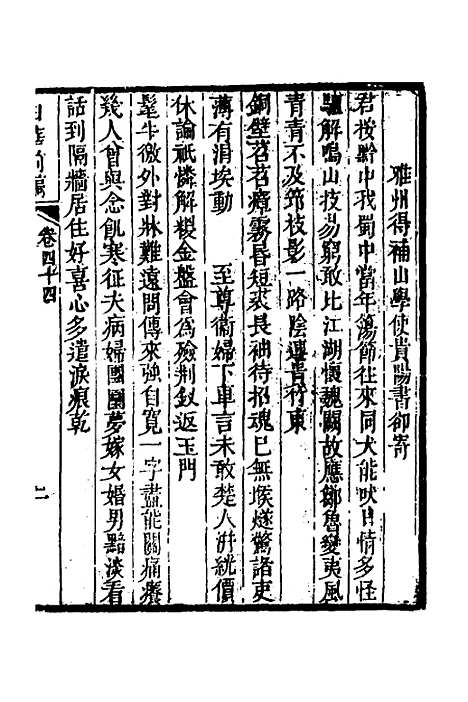 雅州得補山學使貴陽書卻寄
君按黔中我蜀中當年蕩節往來同犬能吠日情多怪
驢解鳴山技易窮敢比江湖懷魏闕故應鄒魯變夷風
青青不及筇枝影一路陰連貴竹東
銅壁岧岧瘴霧昏短裘長袖待招魂已無堠燧驚諸吏
薄有涓埃動　至尊衞婦下車言未敢楚人洴絖價
休論祇憐解糉金盤會為殮荆釵返玉門
髦牛徼外對牀難遠問傳來強自寬一字盡能關痛癢
幾人曾與念飢寒征夫病婦團圞夢嫁女婚男黯淡看
話到隔牆居住好喜心多遣淚痕乾
卷四十四
二